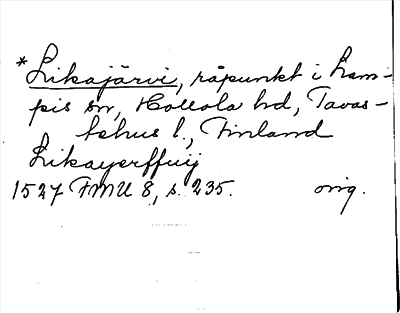 *Likajärvi, råpunkt i Lam-
pis sn, Hollola hd, Tavas-
tehus l., Finland
Likayerffuij
1527 FMU 8, s. 235. orig.